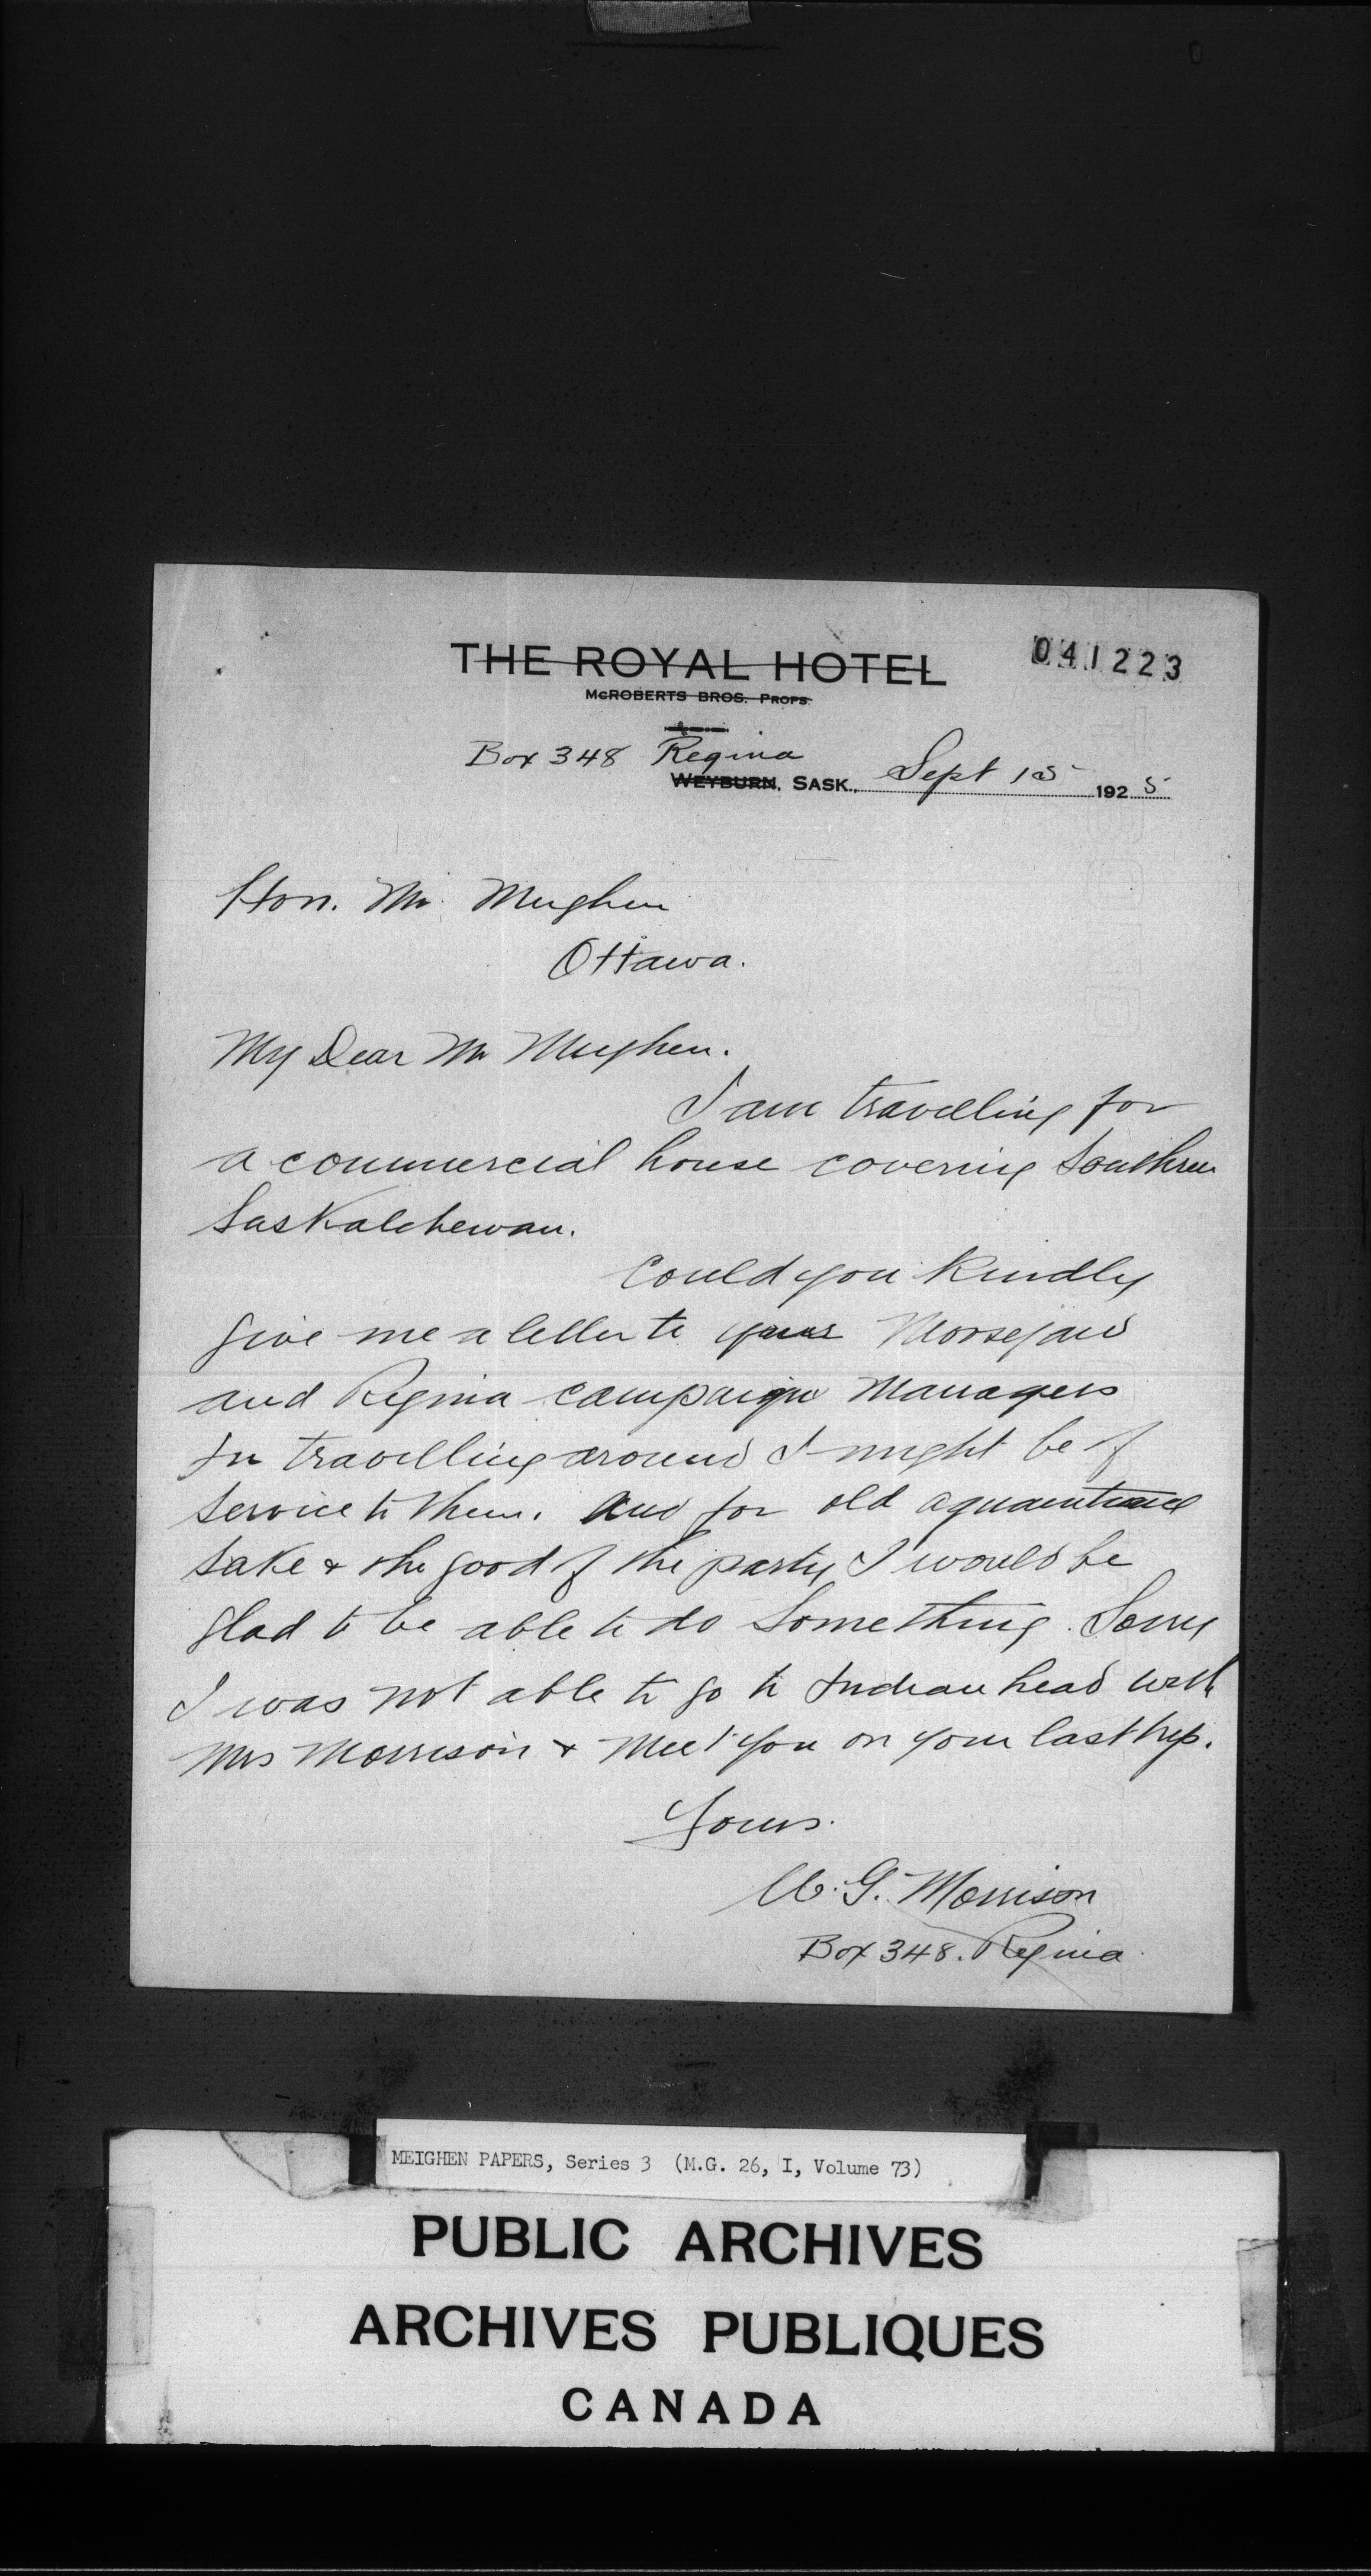 041223
THE ROYAL HOTEL
McROBERTS BROS. PROPS.
Box 348 Regina
WEYBURN, SASK., Sept 15 1925
Hon. Mr. Meighen
Ottawa.
My Dear Mr Meighen.
I am travelling for
a commercial house covering Southern
Saskatchewan.
Could you kindly
give me a letter to your Moosejaw
and Regina campaign Managers
In travelling around I might be of
service to them. And for old aquaintance
sake & the good of the party I would be
glad to be able to do something. Sorry
I was not able to go to Indian head with
Mrs Morrison & Meet you on your last trip.
Yours.
W. G. Morrison
Box 348. Regina
MEIGHEN PAPERS, Series 3 (M.G. 26, I, Volume 73)
PUBLIC ARCHIVES
ARCHIVES PUBLIQUES
CANADA